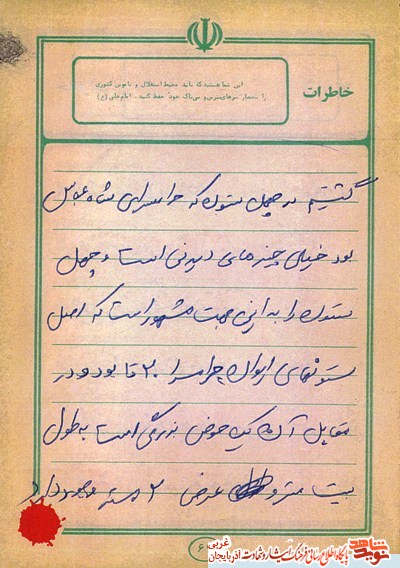 خاطرات
این شما هستید که باید محیط استقلال و ناموس کشوری
را بشعار مرزهای میهن و بی‌باک خود حفظ کنید. امام علی (ع)
گشتیم در چهل ستون که حرامسرای شاه عباس
بود خیلی چیزهای دیدنی است و چهل
ستون را به این جهت مشهور است که اصل
ستونهای ایوان حرامسرا ۲۰ تا بود و در
مقابل آن یک حوض بزرگی است به طول
بیست متر و عرض ۲ وجود دارد
۶
پایگاه اطلاع رسانی فرهنگ ایثار و شهادت آذربایجان غربی
نوید شاهد